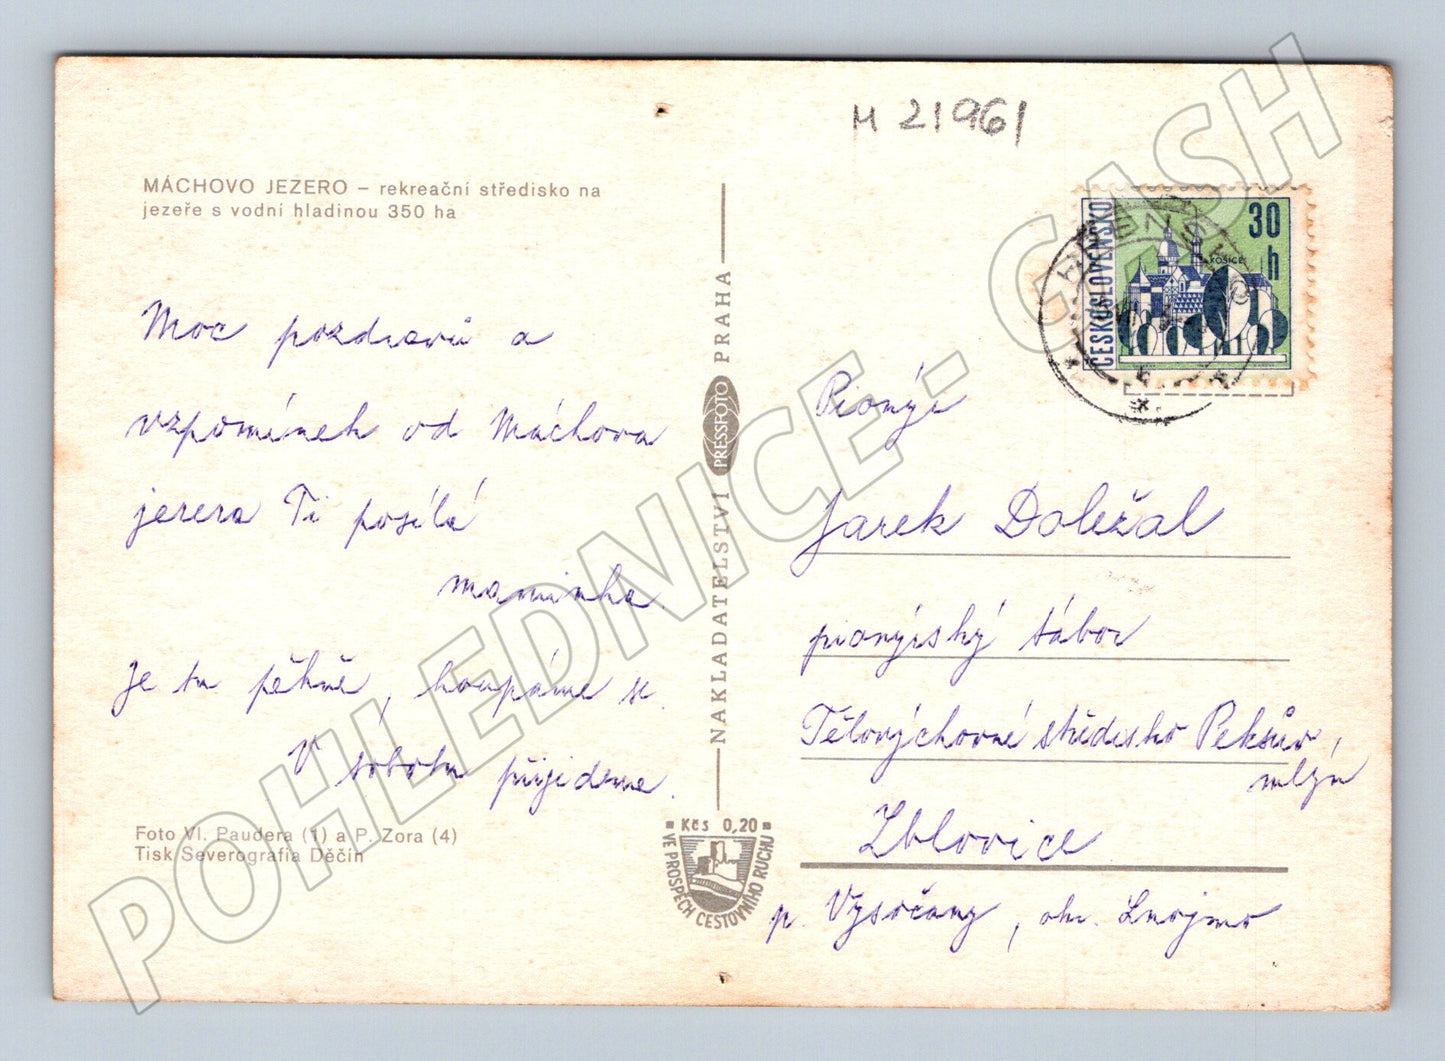 M 21961
MÁCHOVO JEZERO – rekreační středisko na
jezeře s vodní hladinou 350 ha
Moc pozdravů a
vzpomínek od Máchova
jezera Ti posílá
maminka.
Je tu pěkně, koupáme se.
V sobotu přijedeme.
Foto Vl. Paudera (1) a P. Zora (4)
Tisk Severografia Děčín
NAKLADATELSTVÍ PRESSFOTO PRAHA
Kčs 0,20
VE PROSPĚCH CESTOVNÍHO RUCHU
ČESKOSLOVENSKO
30 h
KOŠICE
Pionýr
Jarek Doležal
pionýrský tábor
Tělovýchovné středisko Peksův,
mlýn
Zblovice
p. Vysočany, okr. Znojmo
POHLEDNICE - CASH